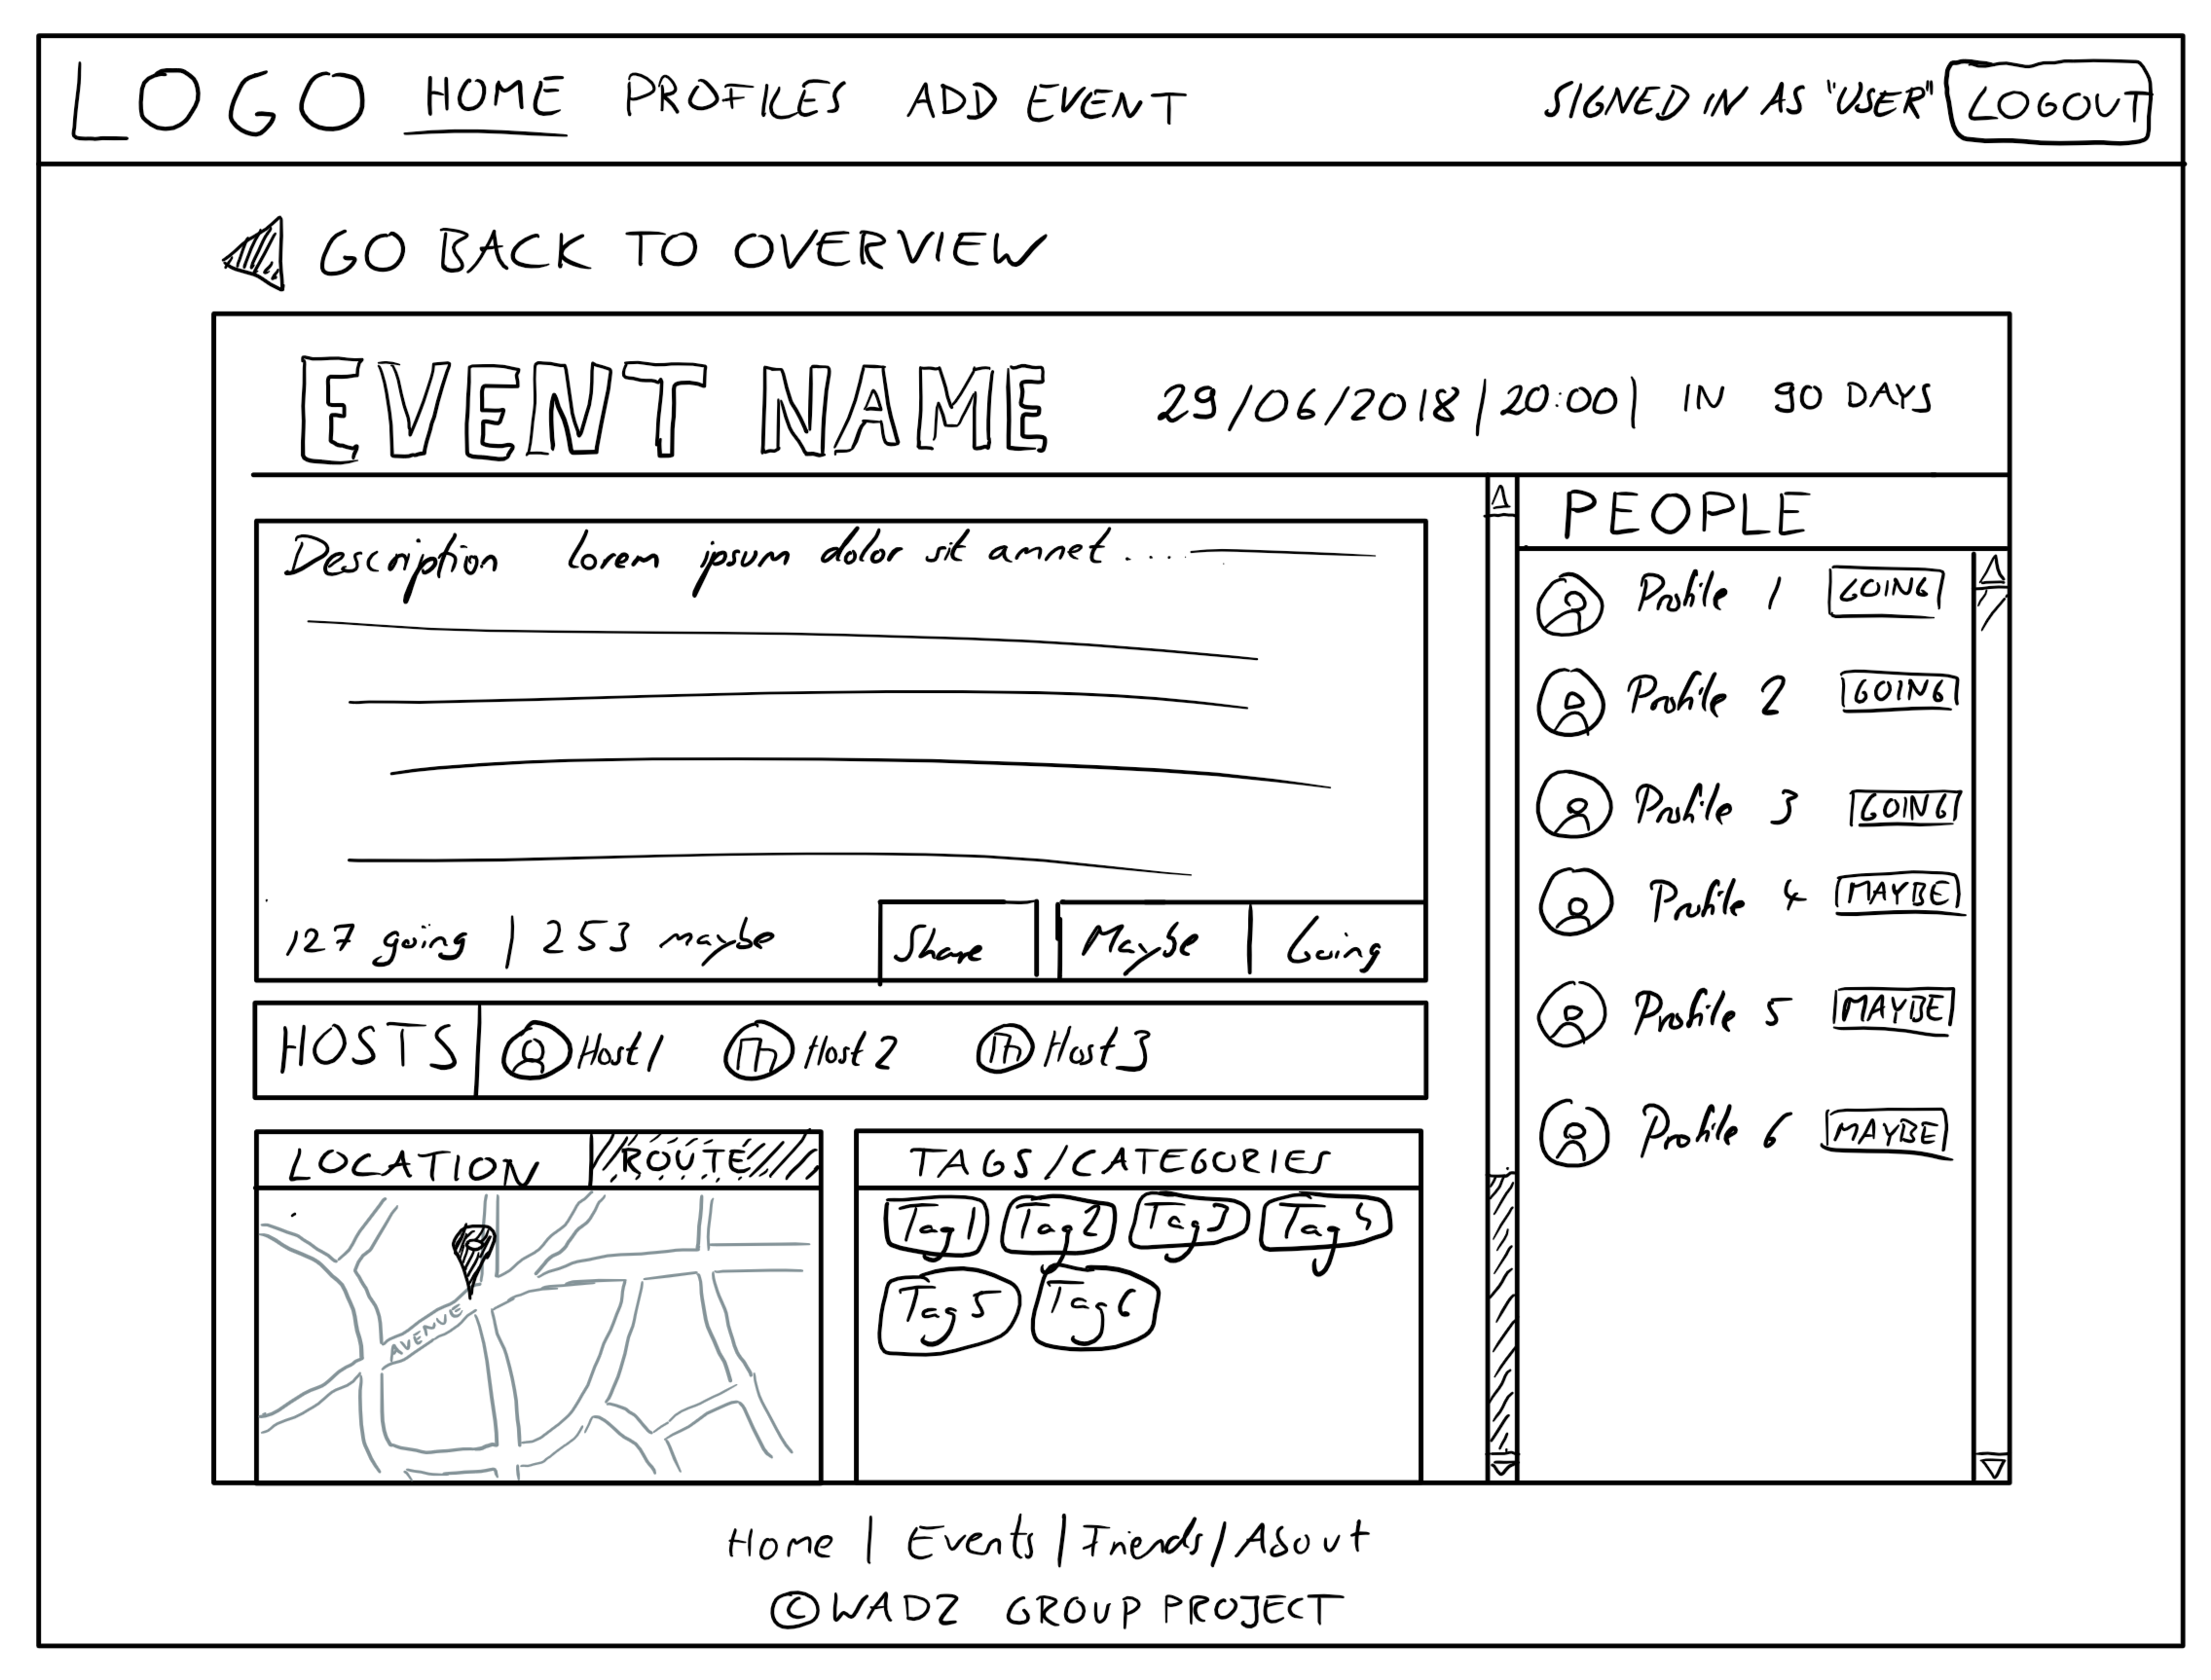 LOGO HOME PROFILES ADD EVENT SIGNED IN AS "USER" LOGOUT
GO BACK TO OVERVIEW
EVENT NAME 29/06/2018 | 20:00 | IN 90 DAYS
Description lorem ipsum dolor sit amnet ....
127 going | 253 maybe Share Maybe Going
HOSTS Host 1 Host 2 Host 3
LOCATION ROUTE
AVENUE
TAGS/CATEGORIES
Tag1 Tag2 Tag3 Tag4
Tag5 Tag6
PEOPLE
Profile 1 GOING
Profile 2 GOING
Profile 3 GOING
Profile 4 MAYBE
Profile 5 MAYBE
Profile 6 MAYBE
Home | Events | Friends | About
© WAD2 GROUP PROJECT